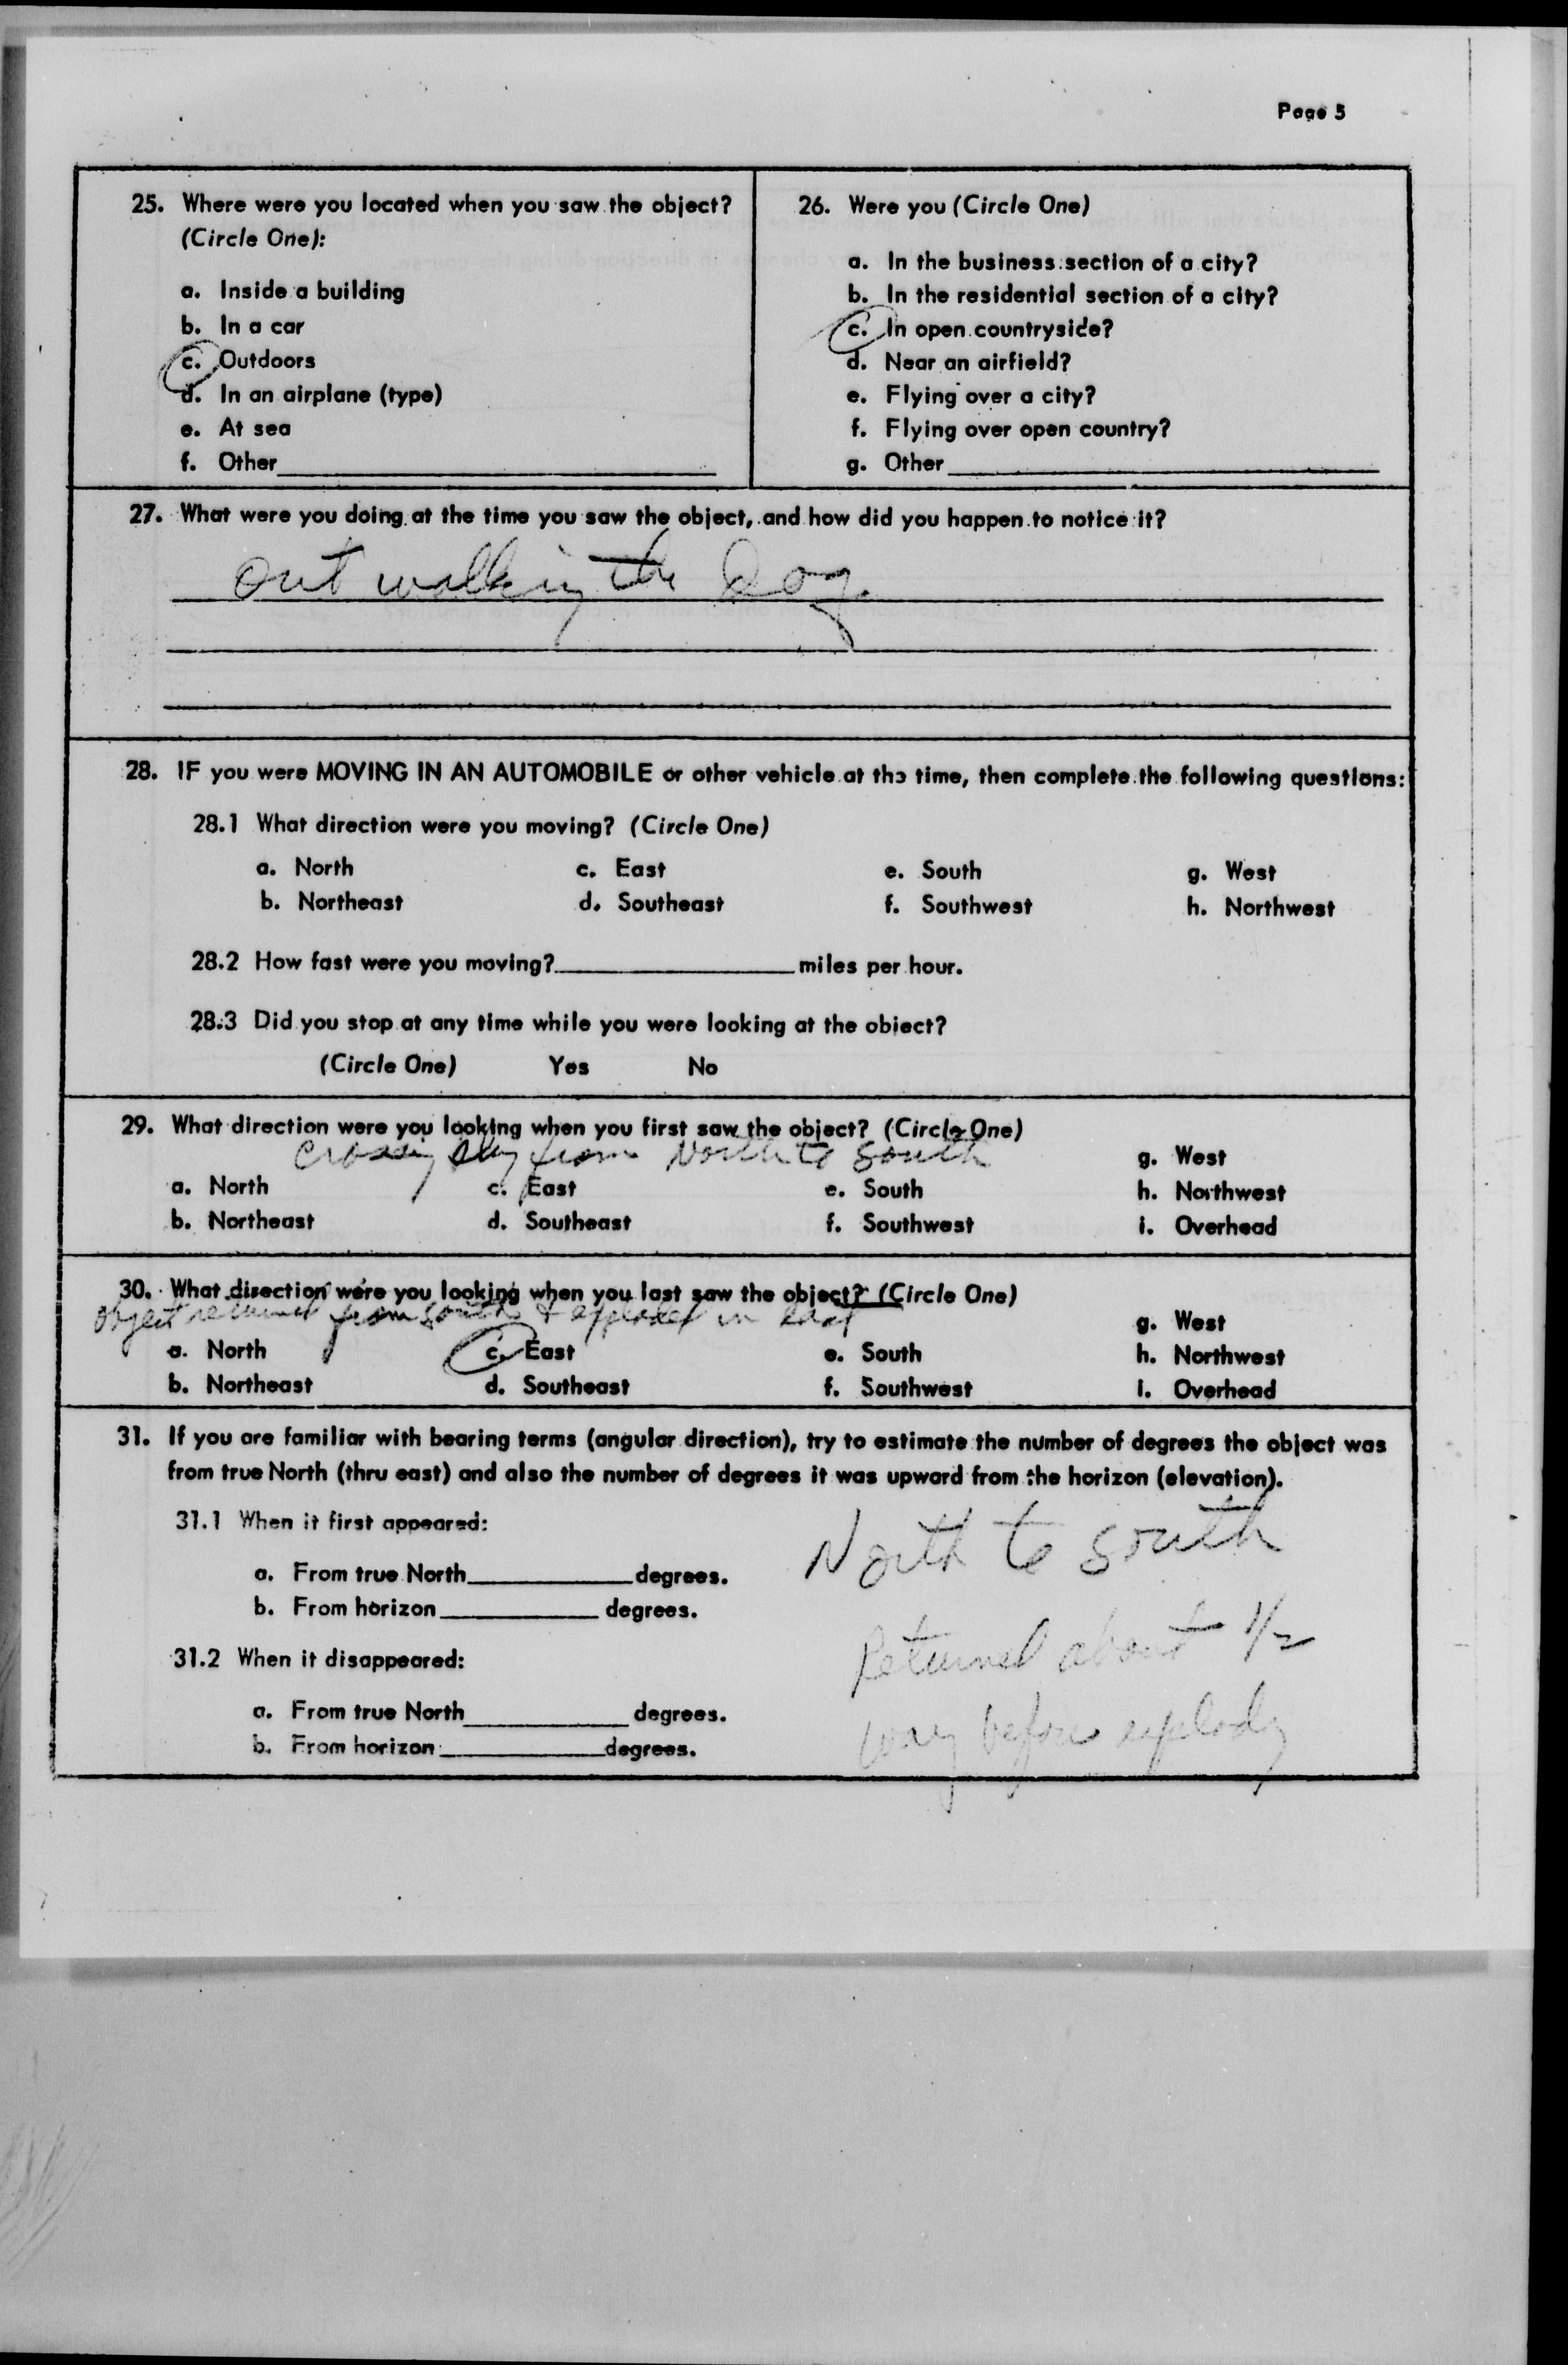 Page 5
25. Where were you located when you saw the object?
(Circle One):
a. Inside a building
b. In a car
c. Outdoors
d. In an airplane (type)
e. At sea
f. Other
26. Were you (Circle One)
a. In the business section of a city?
b. In the residential section of a city?
c. In open countryside?
d. Near an airfield?
e. Flying over a city?
f. Flying over open country?
g. Other
27. What were you doing at the time you saw the object, and how did you happen to notice it?
Out walking the Dog.
28. IF you were MOVING IN AN AUTOMOBILE or other vehicle at the time, then complete the following questions:
28.1 What direction were you moving? (Circle One)
a. North c. East e. South g. West
b. Northeast d. Southeast f. Southwest h. Northwest
28.2 How fast were you moving? miles per hour.
28.3 Did you stop at any time while you were looking at the object?
(Circle One) Yes No
29. What direction were you looking when you first saw the object? (Circle One)
Crossing sky from North to South
g. West
a. North c. East e. South h. Northwest
b. Northeast d. Southeast f. Southwest i. Overhead
30. What direction were you looking when you last saw the object? (Circle One)
object returned from south & exploded in East
g. West
a. North c. East e. South h. Northwest
b. Northeast d. Southeast f. Southwest i. Overhead
31. If you are familiar with bearing terms (angular direction), try to estimate the number of degrees the object was
from true North (thru east) and also the number of degrees it was upward from the horizon (elevation).
31.1 When it first appeared:
a. From true North degrees.
b. From horizon degrees.
31.2 When it disappeared:
a. From true North degrees.
b. From horizon degrees.
North to South
Returned about 1/2
way before explody